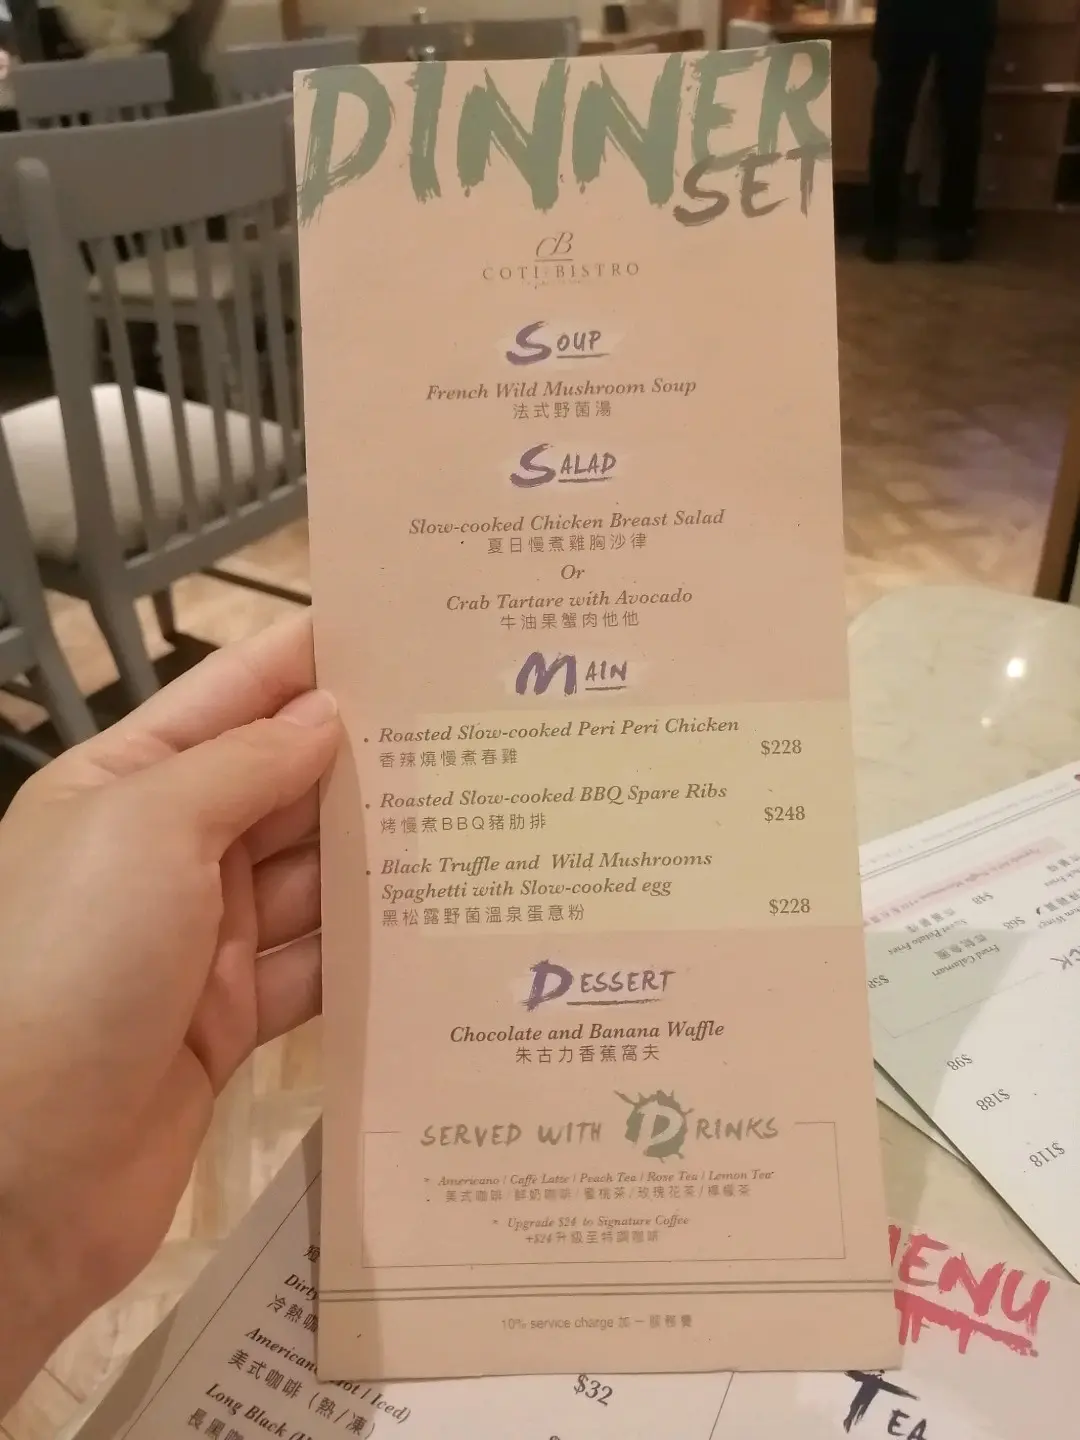 DINNER
SET
CB
COTI BISTRO
SOUP
French Wild Mushroom Soup
法式野菌湯
SALAD
Slow-cooked Chicken Breast Salad
夏日慢煮雞胸沙律
Or
Crab Tartare with Avocado
牛油果蟹肉他他
MAIN
• Roasted Slow-cooked Peri Peri Chicken
香辣燒慢煮春雞
$228
• Roasted Slow-cooked BBQ Spare Ribs
烤慢煮BBQ豬肋排
$248
• Black Truffle and Wild Mushrooms
Spaghetti with Slow-cooked egg
黑松露野菌溫泉蛋意粉
$228
DESSERT
Chocolate and Banana Waffle
朱古力香蕉窩夫
SERVED WITH DRINKS
* Americano / Caffè Latte / Peach Tea / Rose Tea / Lemon Tea*
美式咖啡/鮮奶咖啡/蜜桃茶/玫瑰花茶/檸檬茶
* Upgrade $24 to Signature Coffee
+$24升級至特調咖啡
10% service charge 加一服務費
$48
$68
Sweet Potato Fries
Fried Calamari
$58
$98
$188
$118
MENU
TEA
Dirty
冷熱咖
American
Hot / Iced)
美式咖啡 (熱/凍)
$32
Long Black
長黑咖